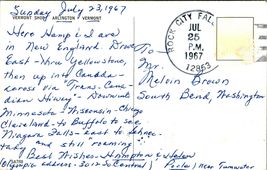 VERMONT SHOP ARLINGTON, VERMONT
Sunday July 23, 1967
Here Hamp & I are
in New England. Drove
East - thru Yellowstone,
then up into Canada -
across via "Trans. Cana-
dean Hiway" - Down into
Minnesota - Wisconsin - Chicago
Cleaveland - to Buffalo to see
Niagara Falls - east to
tady and still roaming
Best Wishes - Hampton & Helen
(Olympic address: 3012 So Central)
To
Mr
Melvin Brown
South Bend, Washington
ROCK CITY FALLS
JUL
25
P.M.
1967
12863
near Tumwater